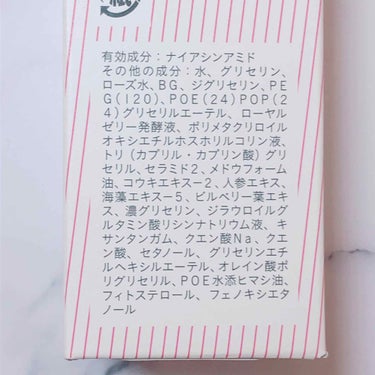 有効成分：ナイアシンアミド
その他の成分：水、グリセリン、
ローズ水、BG、ジグリセリン、PE
G(120)、POE(24)POP(2
4)グリセリルエーテル、ローヤル
ゼリー発酵液、ポリメタクリロイル
オキシエチルホスホリルコリン液、
トリ(カプリル・カプリン酸)グリ
セリル、セラミド2、メドウフォーム
油、コウキエキスー2、人参エキス、
海藻エキスー5、ビルベリー葉エキ
ス、濃グリセリン、ジラウロイルグ
ルタミン酸リシンナトリウム液、キ
サンタンガム、クエン酸Na、クエ
ン酸、セタノール、グリセリンエチ
ルヘキシルエーテル、オレイン酸ポ
リグリセリル、POE水添ヒマシ油、
フィトステロール、フェノキシエタ
ノール